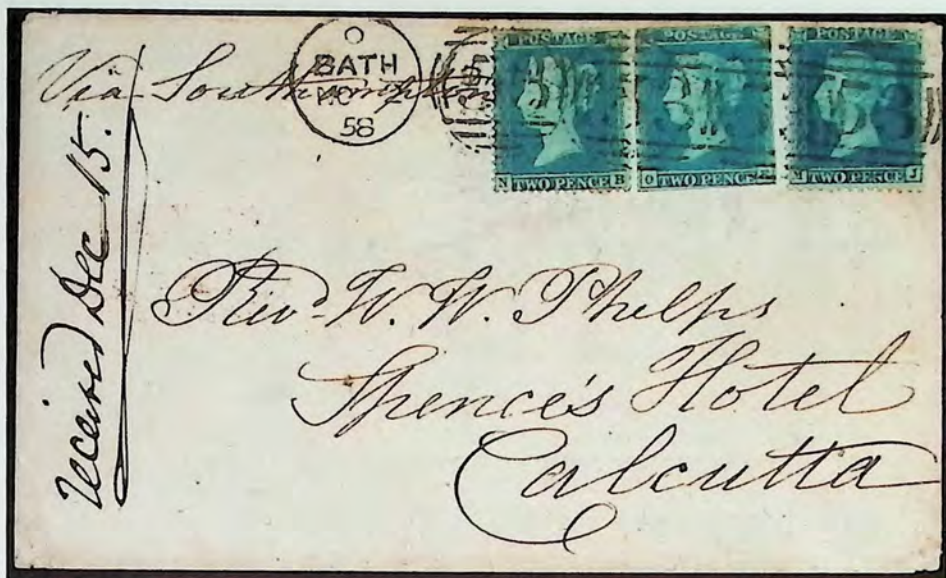 Via Southampton
BATH
NO 2
58
POSTAGE
N TWO PENCE B
POSTAGE
O TWO PENCE
POSTAGE
M TWO PENCE J
53
received Dec 15.
Revd. W. W. Phelps
Spence's Hotel
Calcutta